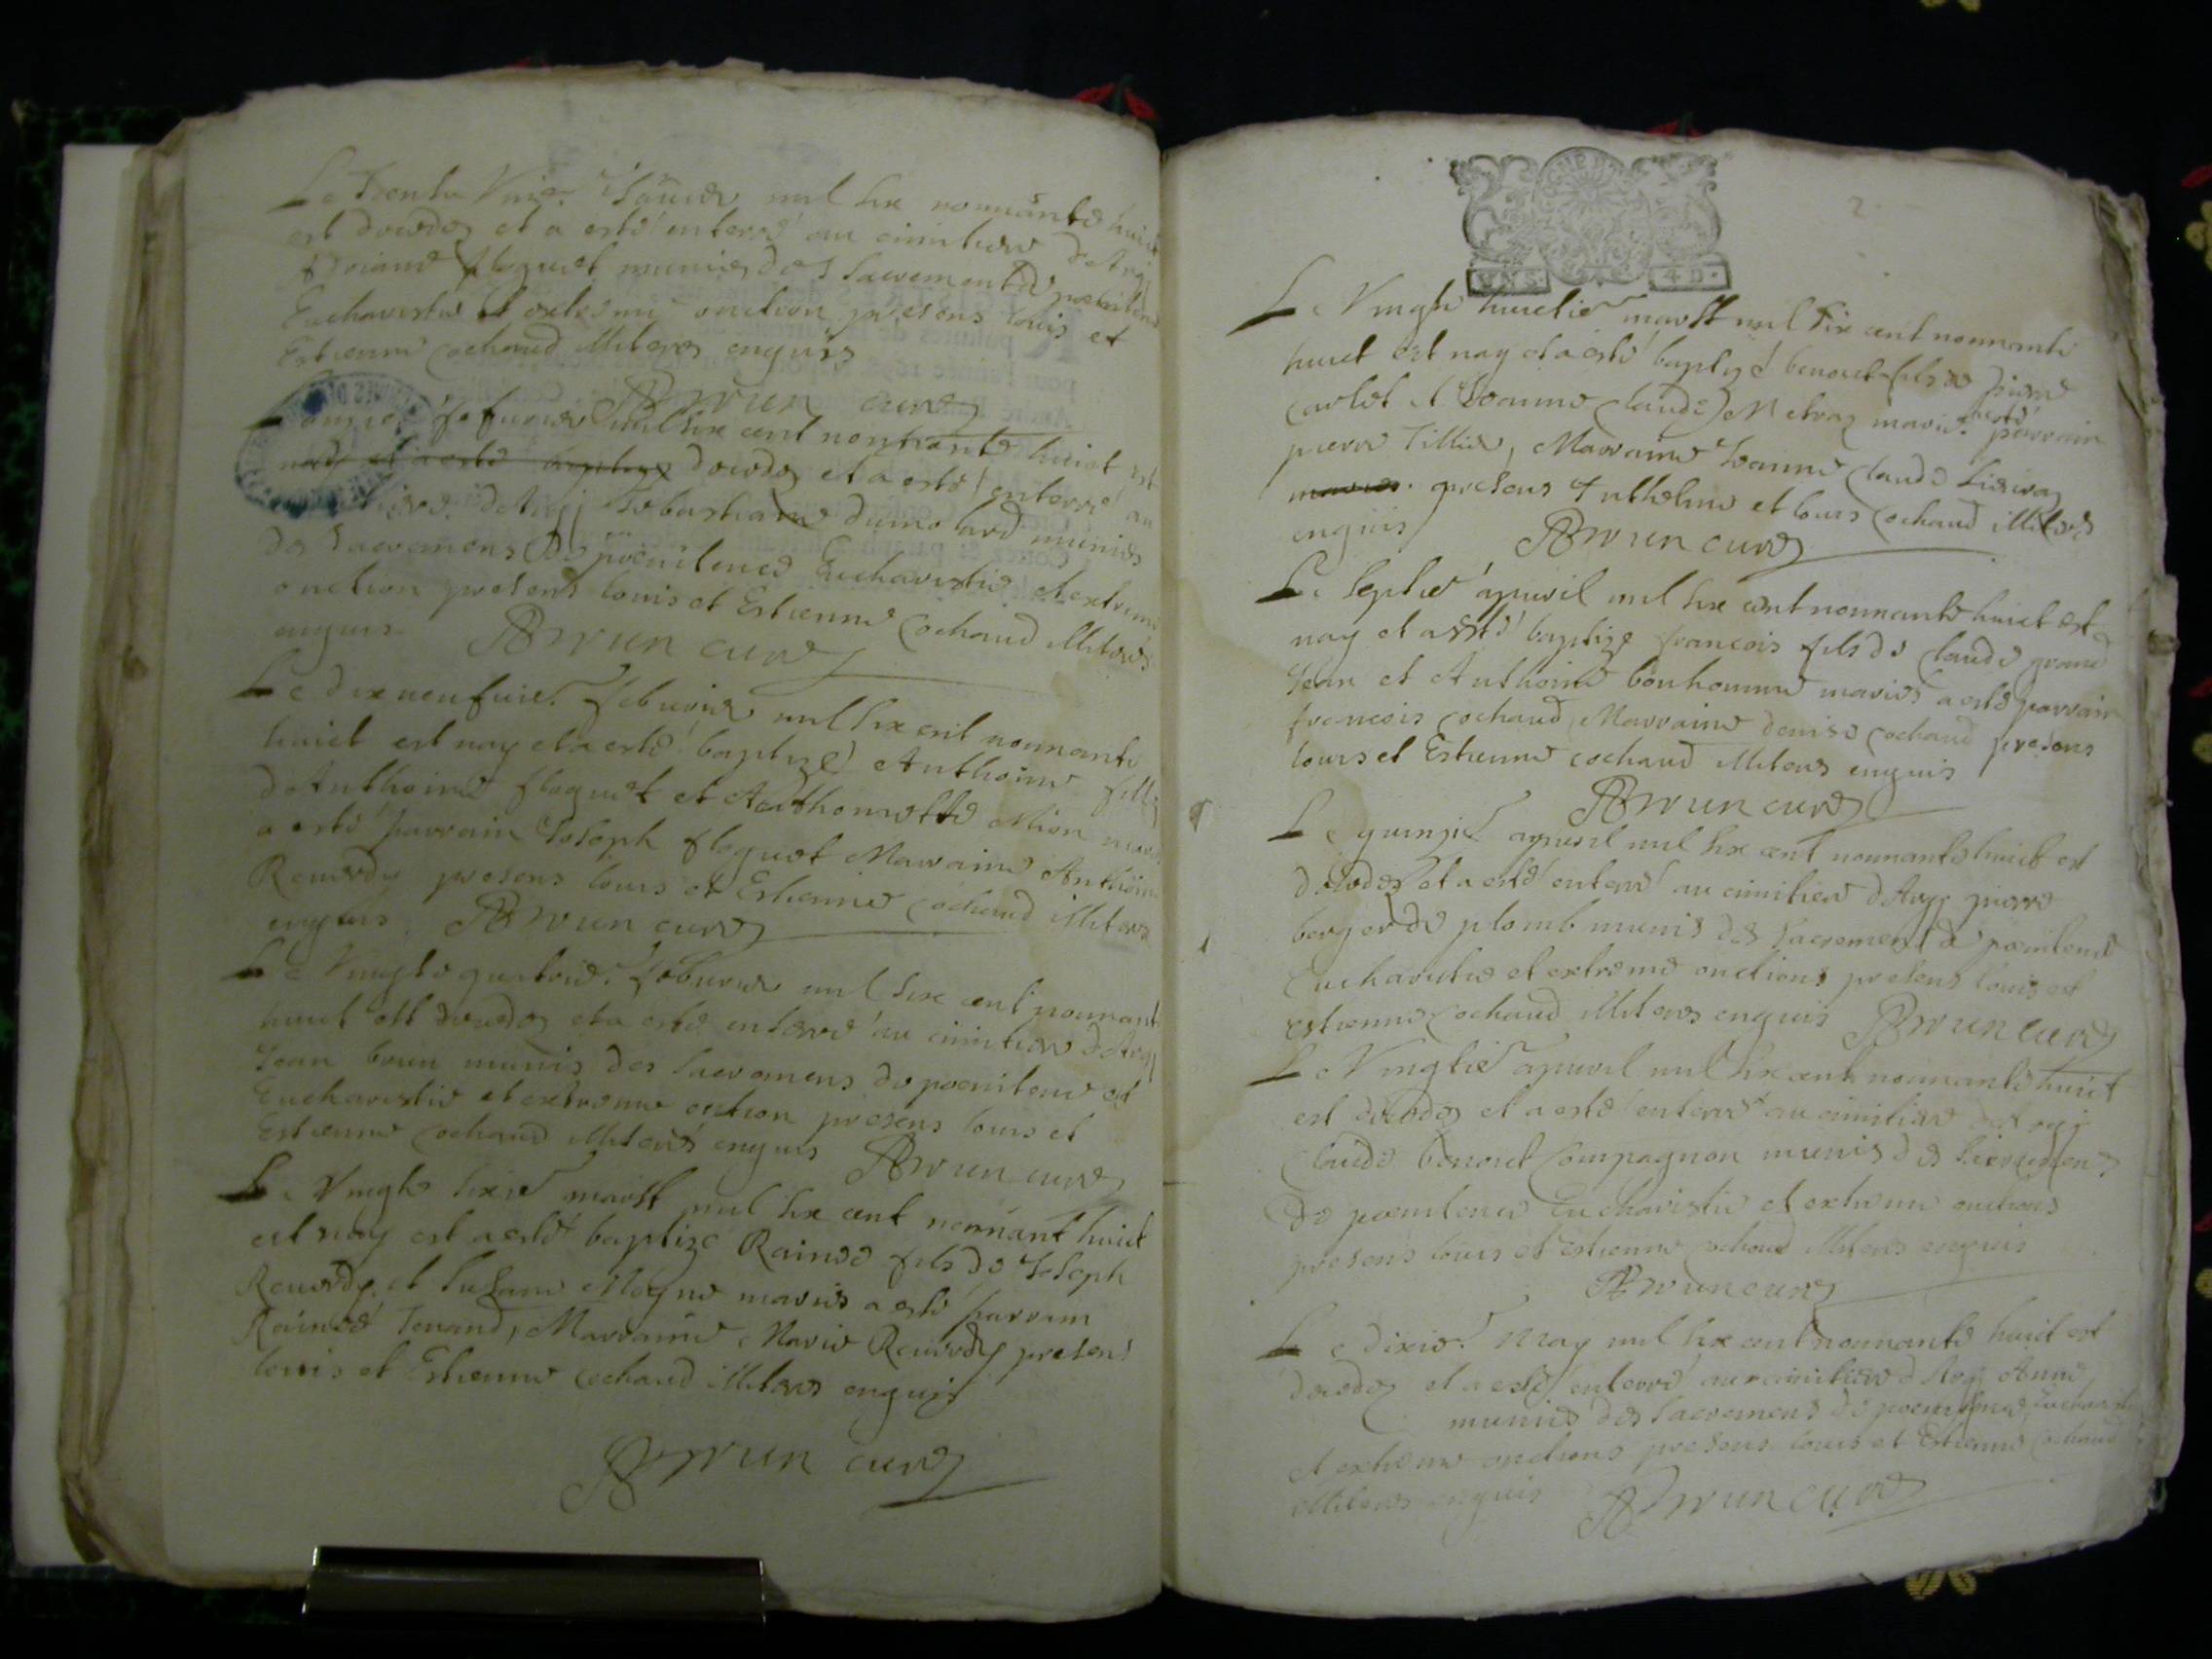 Le trente Vnie. Januier mil six nonnante huict
est decedez et a esté enterré au cimitiere d'Argj
floquet munies des Sacrements de poenitence
Eucharistie et extreme onction presens louis et
Estienne cochaud illiteres enquis
ABrun curez
feburier mil six cent nonnante huict est
decedez et a esté enterré au
d'Argj dumolard munies
des Sacremens de poenitence Eucharistie et extreme
onction presens louis et Estienne cochaud illiteres
enquis ABrun curez
Le dixneufuie. feburier mil six cent nonnante
huict est nay et a esté baptizé Anthoine fils
d'Anthoine floquet et Anthonette Mion
a esté parrain Joseph floquet Marraine Anthoine
Reuerdy presens louis et Estienne cochaud illiteres
enquis ABrun curez
Le Vingte quatrie. feburier mil six cent nonnante
huict est decedez et a esté enterré au cimitiere d'Argj
Jean brun munis des Sacremens de poenitence et
Eucharistie et extreme onction presens louis et
Estienne cochaud illiterés enquis ABrun curez
Le Vingte sixie marst mil six cent nonnant huict
est nay est a esté baptize Rainee fils de Joseph
Reuerdy et Susane mariés a esté parrain
Rainee Tenand, Marraine Marie Reuerdy presens
louis et Estienne cochaud illiteres enquis
ABrun curez
2
GNS. 4D.
Le Vingte huictie marst mil six cent nonnante
huict est nay et a esté baptizé benoict fils de pierre
carlet et Jeanne claude Metraz mariés. a esté parrain
pierre Tillier, Marraine Jeanne claude
presens Anthelme et louis cochaud illiteres
enquis ABrun curez
Le Septie apuril mil six cent nonnante huict est
nay et a esté baptize francois fils de claude grand
Jean et Anthoine bonhomme mariés a esté parrain
francois cochaud, Marraine denise cochaud presens
louis et Estienne cochaud illiteres enquis
ABrun curez
Le quinzie apuril mil six cent nonnante huict est
decedez et a esté enterré au cimitiere d'Argj pierre
berger de plomb munis des Sacrement de poenitence
Eucharistie et extreme onctions presens louis et
estienne cochaud illiteres enquis ABrun curez
Le Vingtie apuril mil six cent nonnante huict
est decedez et a esté enterré au cimitiere d'Argj
claude benoict compagnon munis des Sacremens
de poenitence Eucharistie et extreme onctions
presens louis et Estienne cochaud illiteres enquis
ABrun curez
Le dixie. May mil six cent nonnante huict est
decedez et a esté enterré au cimitiere d'Argj Anne
munies des Sacremens de poenitence Eucharistie
et extreme onctions presens louis et Estienne cochaud
illiteres enquis ABrun curez